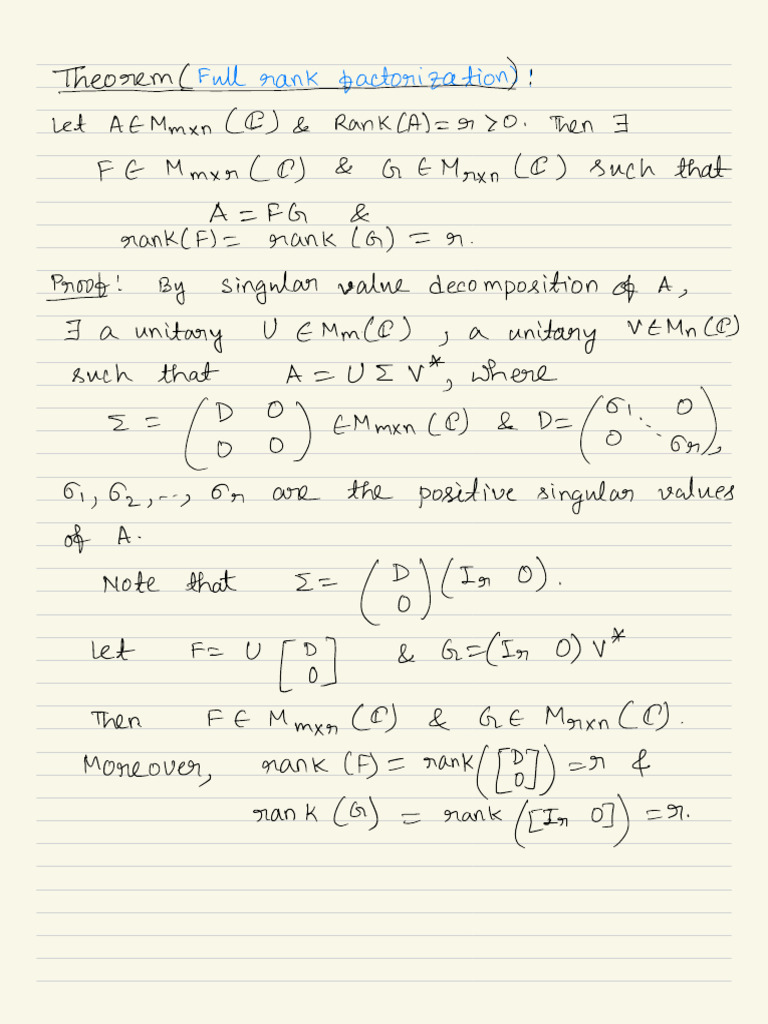 Theorem (Full rank factorization):
Let A∈M_{m×n}(ℂ) & Rank(A)=r>0. Then ∃
F∈ M_{m×r}(ℂ) & G∈M_{r×n}(ℂ) such that
A = FG &
rank(F)= rank(G) = r.
Proof: By singular value decomposition of A,
∃ a unitary U ∈M_m(ℂ), a unitary V∈M_n(ℂ)
such that A = U Σ V*, where
Σ = (D 0; 0 0) ∈M_{m×n}(ℂ) & D= (σ_1 0; ⋱; 0 σ_r),
σ_1, σ_2, ..., σ_r are the positive singular values
of A.
Note that Σ = (D; 0)(I_r 0).
Let F= U [D; 0] & G=(I_r 0) V*
Then F∈ M_{m×r}(ℂ) & G∈ M_{r×n}(ℂ).
Moreover, rank(F) = rank([D; 0]) = r &
rank(G) = rank([I_r 0]) = r.